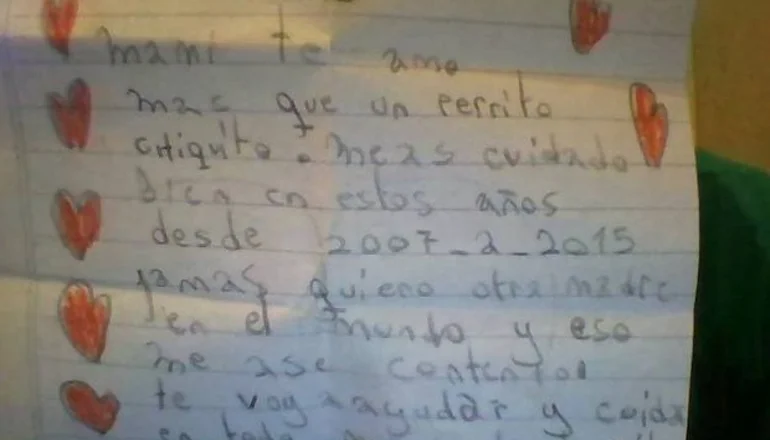 mami te amo
mas que un perrito
chiquito. me as cuidado
bien en estos años
desde 2007-a-2015
jamas quiero otra madre
en el mundo y eso
me ase contento
te voy a ayudar y cuida
en todo